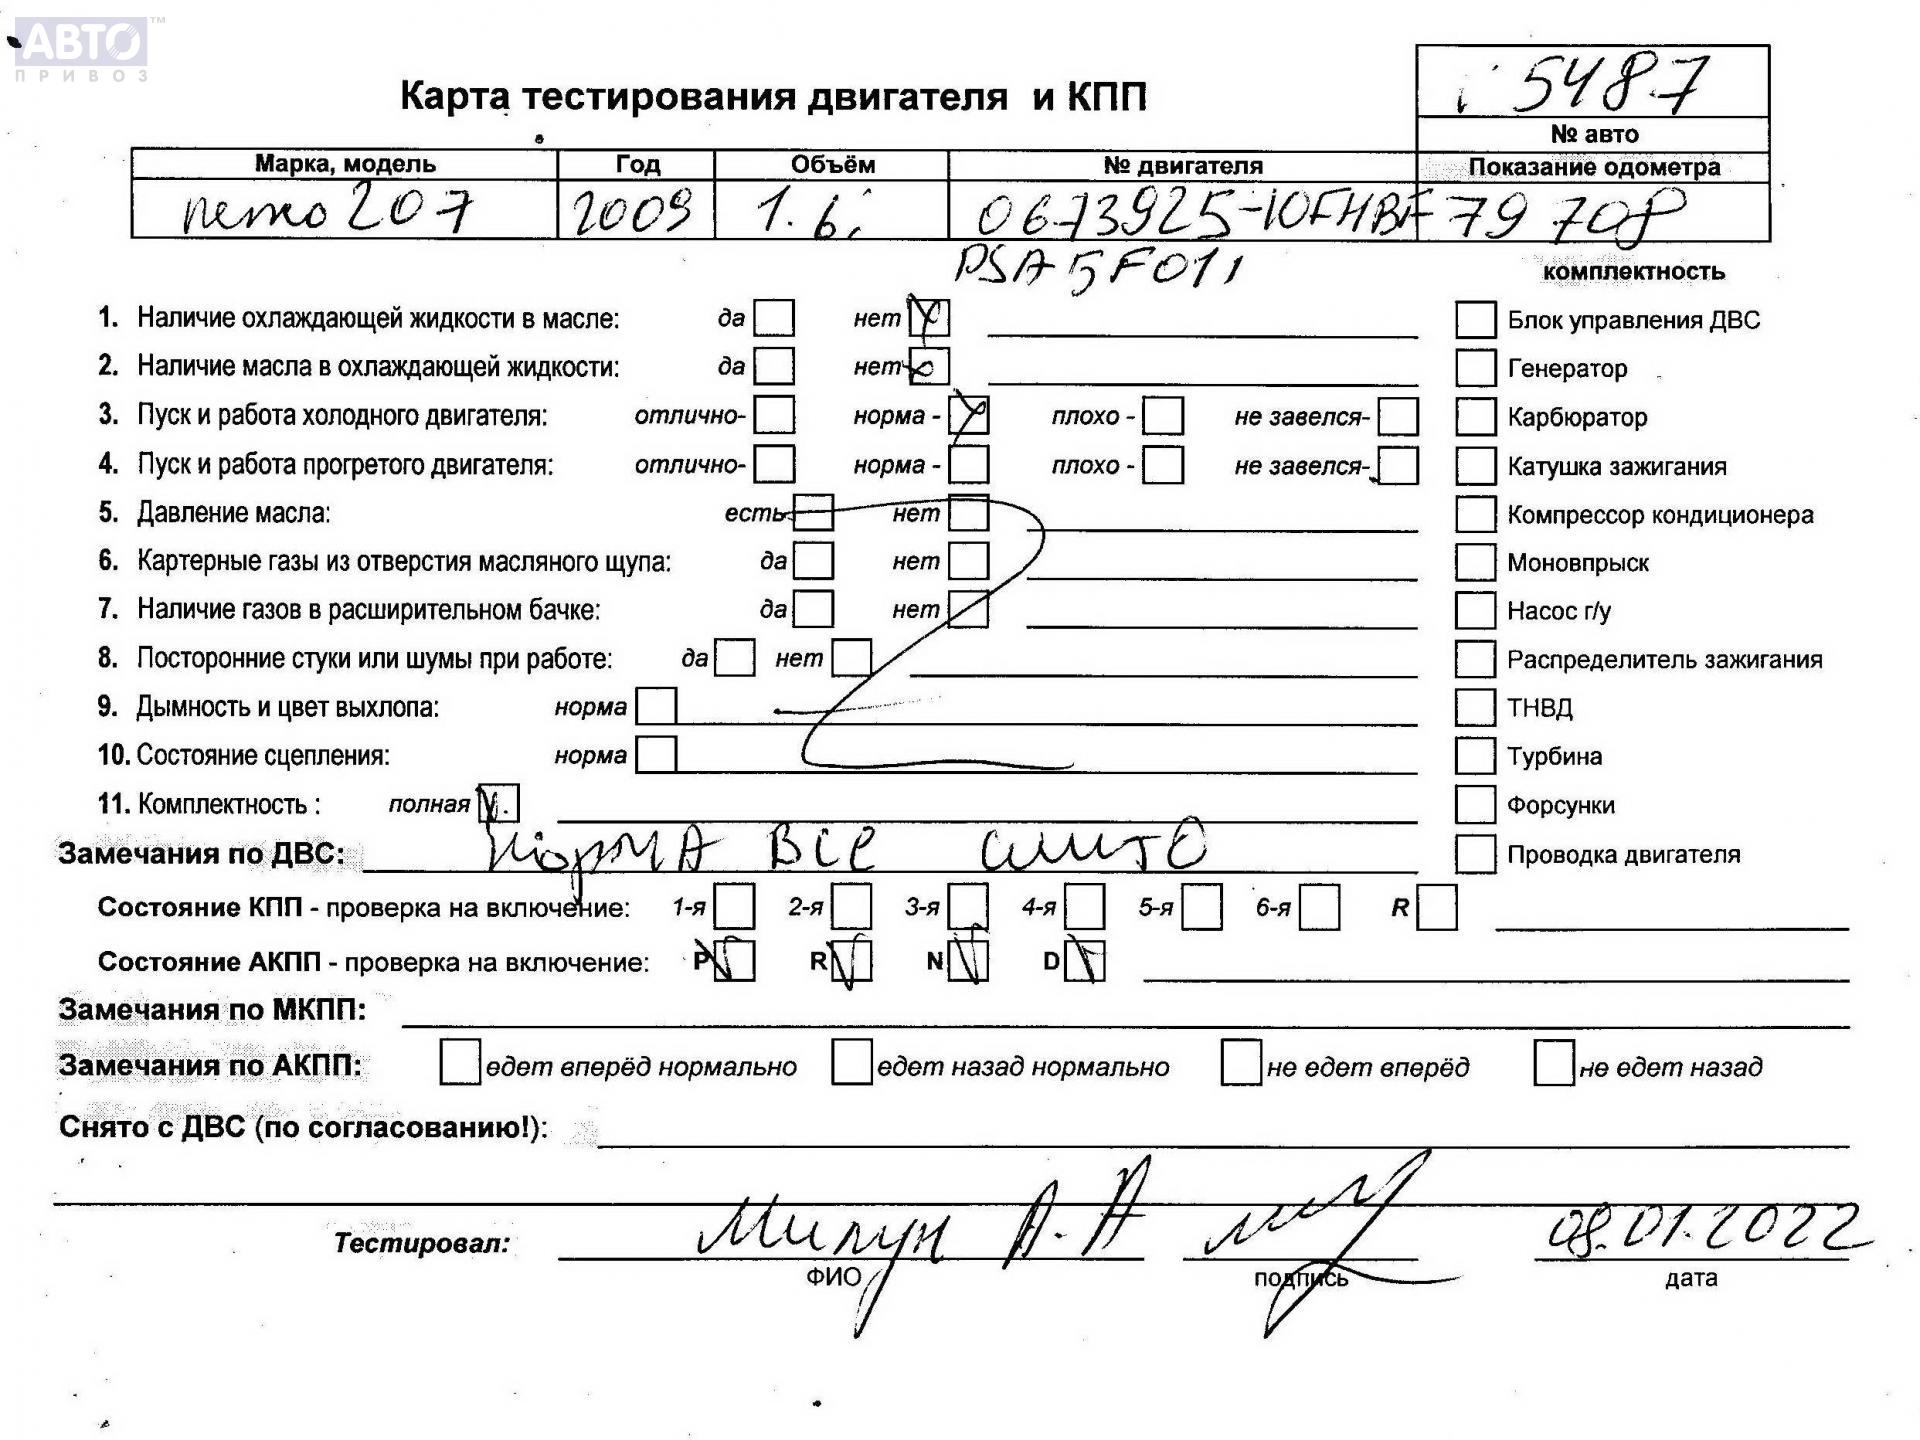 АВТО™
ПРИВОЗ
i 5487
Карта тестирования двигателя и КПП
№ авто
Марка, модель Год Объём № двигателя Показание одометра
пежо 207 2009 1.6i 0673925-10FHBF 79 708
PSA5F01
комплектность
1. Наличие охлаждающей жидкости в масле: да нет Блок управления ДВС
2. Наличие масла в охлаждающей жидкости: да нет Генератор
3. Пуск и работа холодного двигателя: отлично- норма - плохо - не завелся- Карбюратор
4. Пуск и работа прогретого двигателя: отлично- норма - плохо - не завелся- Катушка зажигания
5. Давление масла: есть нет Компрессор кондиционера
6. Картерные газы из отверстия масляного щупа: да нет Моновпрыск
7. Наличие газов в расширительном бачке: да нет Насос г/у
8. Посторонние стуки или шумы при работе: да нет Распределитель зажигания
9. Дымность и цвет выхлопа: норма ТНВД
10. Состояние сцепления: норма Турбина
11. Комплектность : полная Форсунки
Замечания по ДВС: Норма все Проводка двигателя
Состояние КПП - проверка на включение: 1-я 2-я 3-я 4-я 5-я 6-я R
Состояние АКПП - проверка на включение: P R N D
Замечания по МКПП:
Замечания по АКПП: едет вперёд нормально едет назад нормально не едет вперёд не едет назад
Снято с ДВС (по согласованию!):
Тестировал: А.А 08.01.2022
ФИО подпись дата